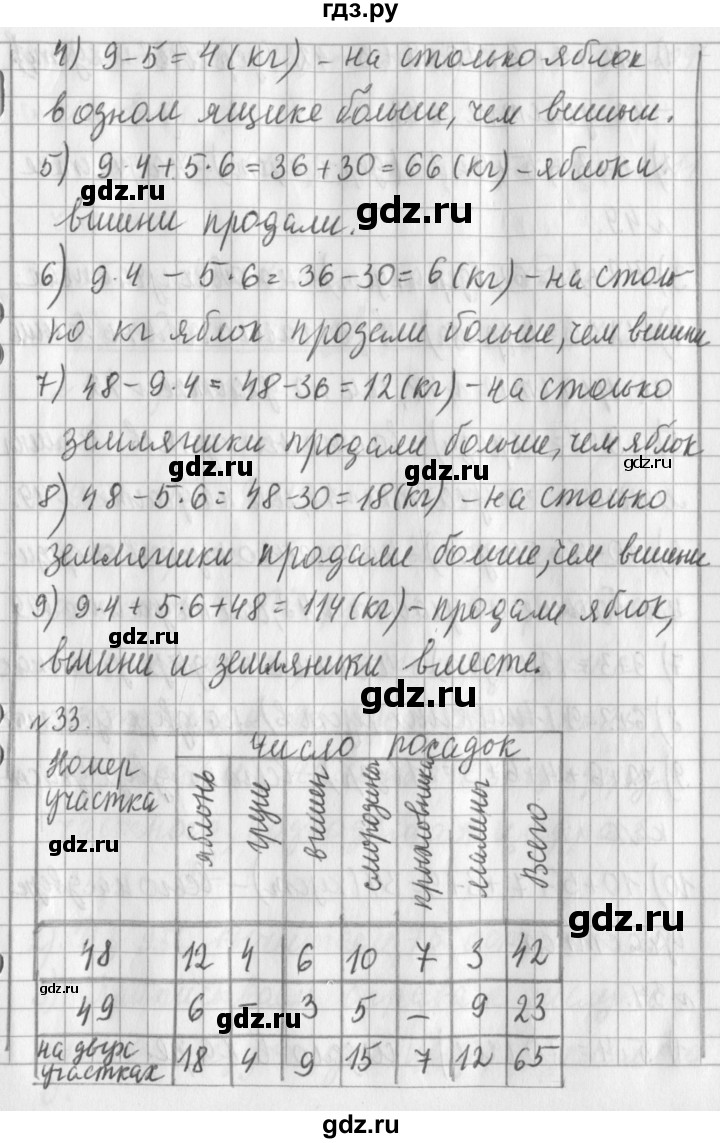 гдз.ру
4) 9-5=4(кг) - на столько яблок
в одном ящике больше, чем вишни.
5) 9·4+5·6=36+30=66(кг) - яблок и
gdz.ru
gdz.ru
вишни продали.
6) 9·4 - 5·6= 36-30= 6(кг) - на столь
ко кг яблок продали больше, чем вишни
7) 48-9·4= 48-36=12(кг) - на столько
земляники продали больше, чем яблок
gdz.ru
gdz.ru
gdz.ru
8) 48-5·6= 48-30=18(кг) - на столько
земляники продали больше, чем вишни
9) 9·4+5·6+48=114(кг) - продали яблок,
gdz.ru
вишни и земляники вместе.
gdz.ru
№33.
Номер участка
число посадок
яблонь груш вишен смородины крыжовника малины Всего
gdz.ru
gdz.ru
48 12 4 6 10 7 3 42
gdz.ru
49 6 - 3 5 - 9 23
gdz.ru
на двух участках 18 4 9 15 7 12 65
gdz.ru